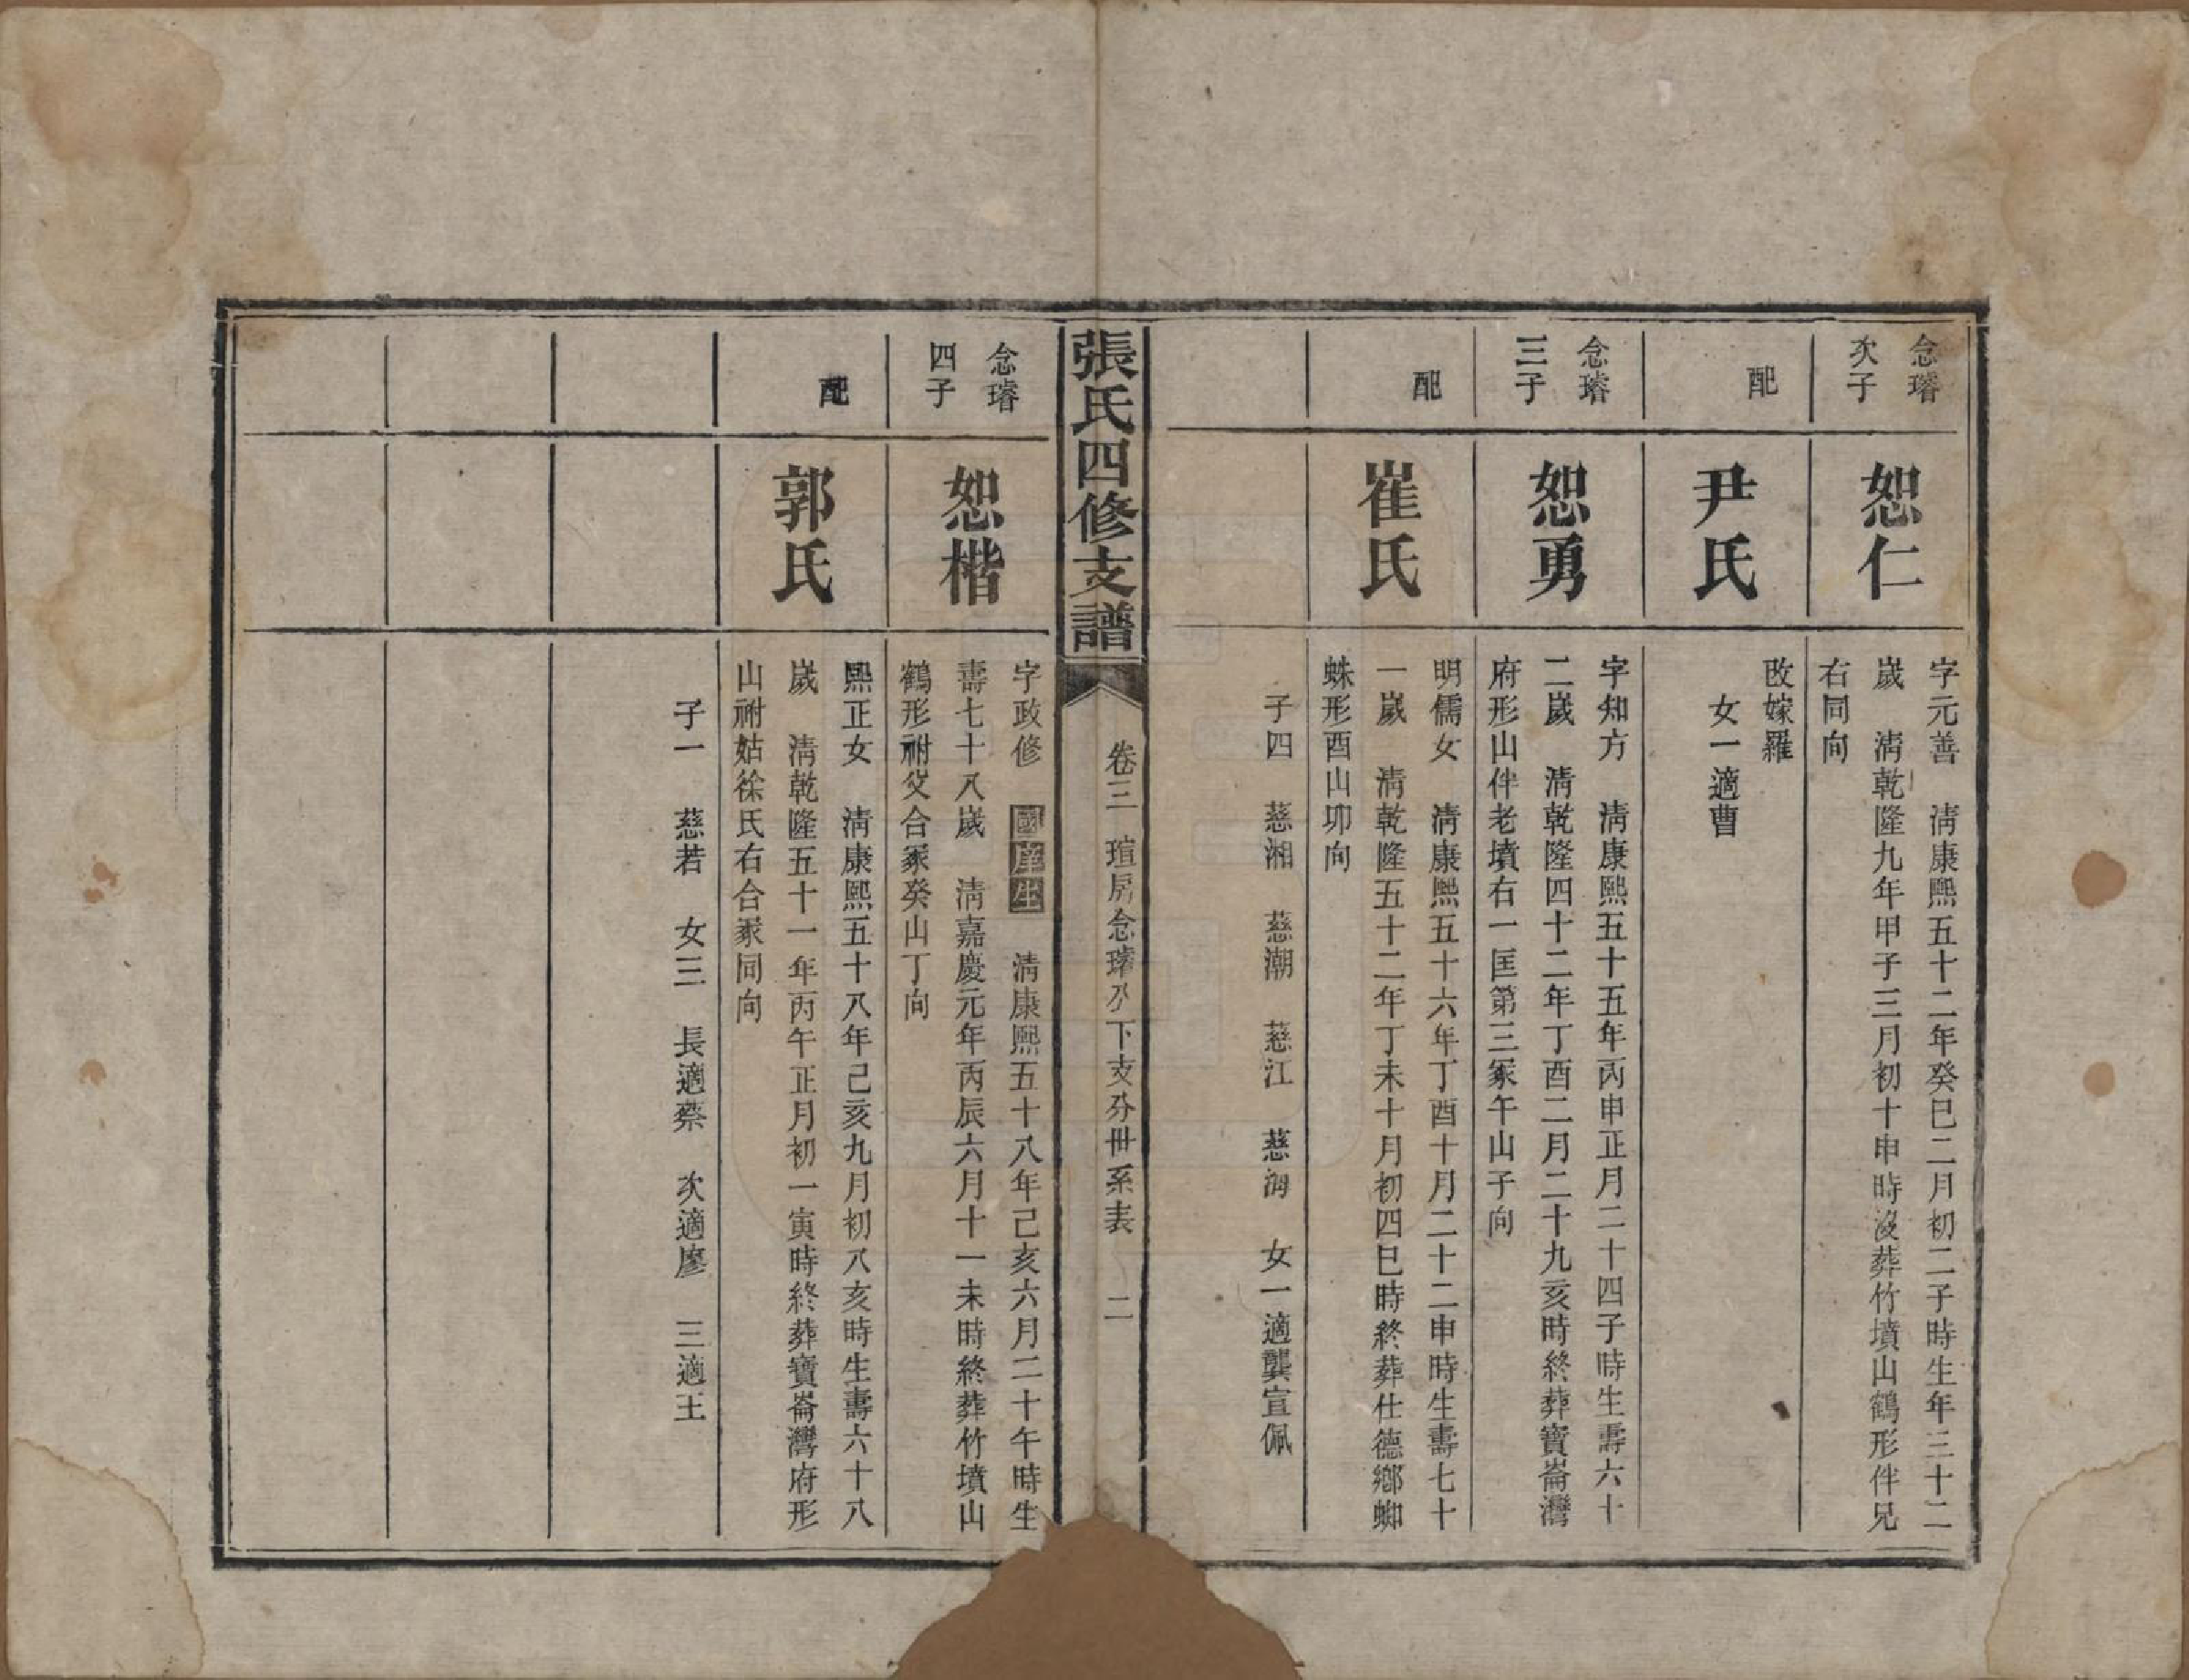 念璿
次子
恕仁
字元善　清康熙五十二年癸巳二月初二子時生年三十二
歲　清乾隆九年甲子三月初十申時沒葬竹墳山鶴形伴兄
右同向
配
尹氏
改嫁羅
女一適曹
念璿
三子
恕勇
字知方　清康熙五十五年丙申正月二十四子時生壽六十
二歲　清乾隆四十二年丁酉二月二十九亥時終葬寶崙灣
府形山伴老墳右一匡第三冢午山子向
配
崔氏
明儒女　清康熙五十六年丁酉十月二十二申時生壽七十
一歲　清乾隆五十二年丁未十月初四巳時終葬仕德鄉蜘
蛛形酉山卯向
子四　慈湘　慈潮　慈江　慈海　女一適龔宣佩
張氏四修支譜
卷三　瑄房念璿公下支分世系表　二
念璿
四子
恕楷
字政修　國庠生　清康熙五十八年己亥六月二十午時生
壽七十八歲　清嘉慶元年丙辰六月十一未時終葬竹墳山
鶴形祔父合冢癸山丁向
配
郭氏
熙正女　清康熙五十八年己亥九月初八亥時生壽六十八
歲　清乾隆五十一年丙午正月初一寅時終葬寶崙灣府形
山祔姑徐氏右合冢同向
子一　慈若　女三　長適蔡　次適廖　三適王